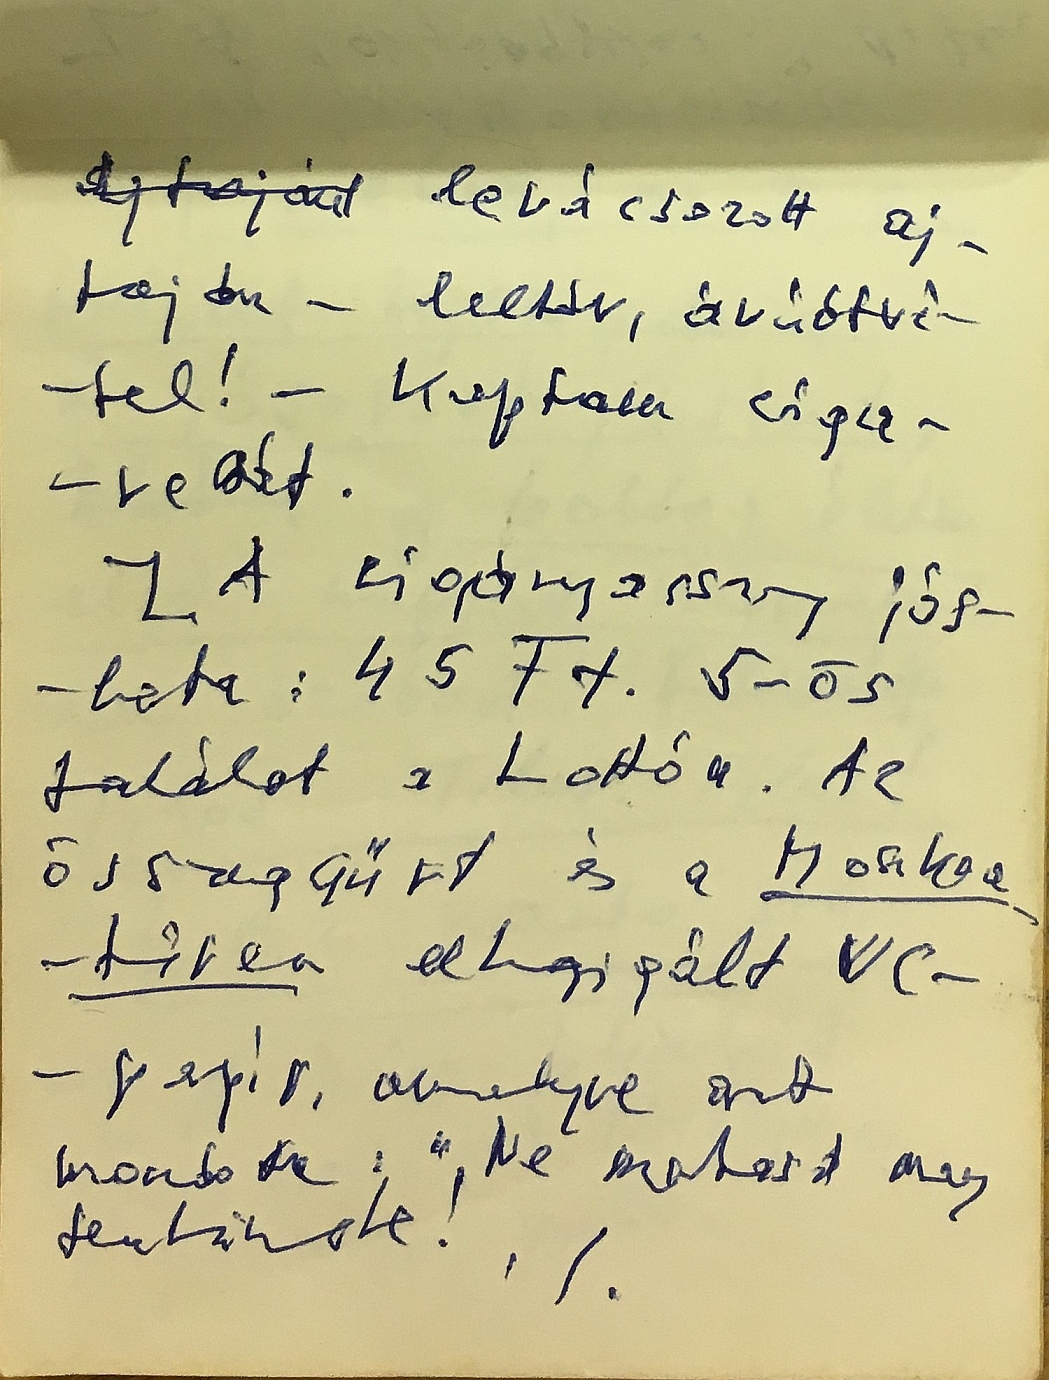 ~~Ajtaján~~ levácsozott aj-
taján – leltár, áruátvé-
-tel! – Kaptam ciga-
-rettát.
A cigányasszony jós-
-lata: 45 Ft. 5-ös
találat a Lottón. Az
összeggyűrt és a Moszkva
-téren elhagigált WC-
-papír, amelyre azt
mondta: "Ne mutasd meg
senkinek!
./.